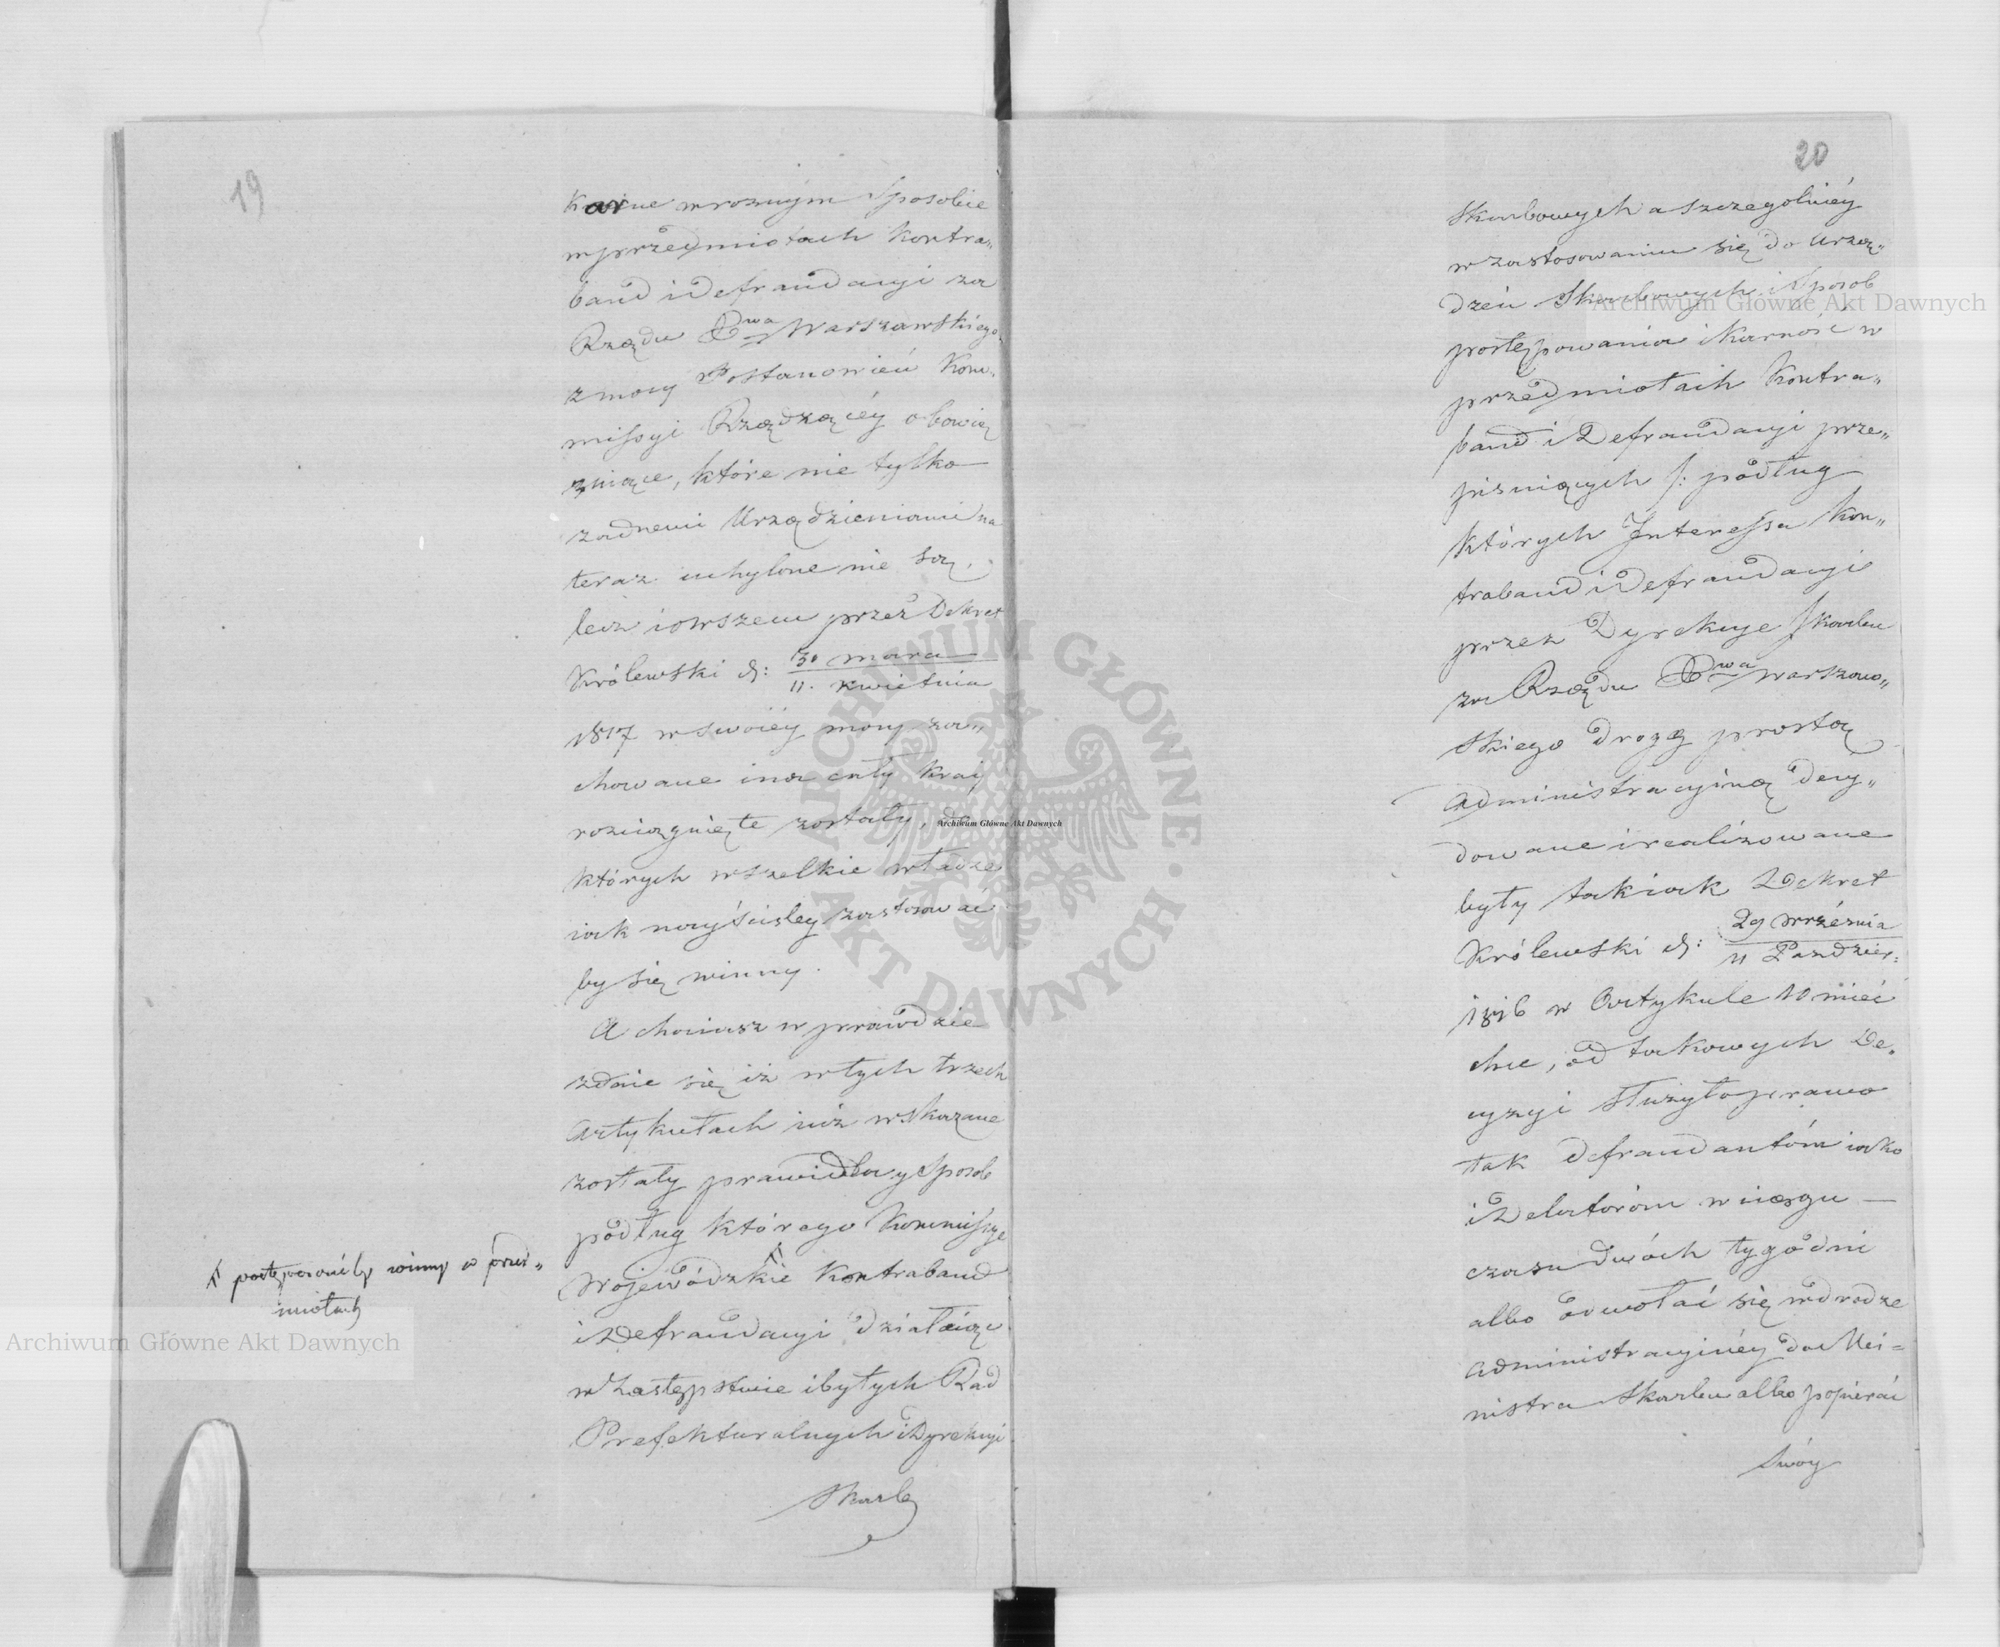 19
karne w roznym Sposobie
w przedmiotach Kontra„
band i Defraudacyi za
Rządu Xwa Warszawskiego
z mocy Postanowień Kom„
missyi Rządzącéy obowią
zuiące, które nie tylko
żadnemi Urządzieniami na
teraz uchylone nie są,
lecz i owszem przez Dekret
Królewski d: 30 marca
11. kwietnia
1817 w swoiéy mocy za„
chowane i na cały kray
rozciągnięte zostały, do
których wszelkie władze
iak nayściśley zastosować
by się winny.
A chociasz w prawdzie
zdaie się iż w tych trzech
Artykułach iuż wskazane
zostały prawidła y Sposob
podług którego Kommissye
Wojewódzkie Kontraband
i Defraudacyi działaiąc
w Zastępstwie i byłych Rad
Prefekturalnych i Dyrekcyi
Skarb
postępować by winny w przed„
miotach
20
Skarbowych a szczegolniéy
w zastosowaniu się do Urzą„
dzeń Skarbowych i Sposob
postępowania i karność w
przedmiotach Kontra„
band i Defraudacyi prze„
pisuiących /: podług
których Interessa Kon„
traband i Defraudacyi
przez Dyrekcye Skarbu
za Rządu Xwa Warszaw„
skiego drogą prostą
Administracyiną decy„
dowane i realizowane
były tak iak Dekret
Królewski d: 29 Września
11 Paździer:
1816 w Artykule 10 mieć
chce, od takowych De„
cyzyi służyło prawo
tak defraudantóm iako
i Delatoróm w ciągu —
czasu dwóch tygodni
albo odwołać się w drodze
Administracyinéy do Mi=
nistra Skarbu albo popierać
swóy
Archiwum Główne Akt Dawnych
Archiwum Główne Akt Dawnych
Archiwum Główne Akt Dawnych
ARCHIWUM GŁÓWNE · AKT DAWNYCH ·